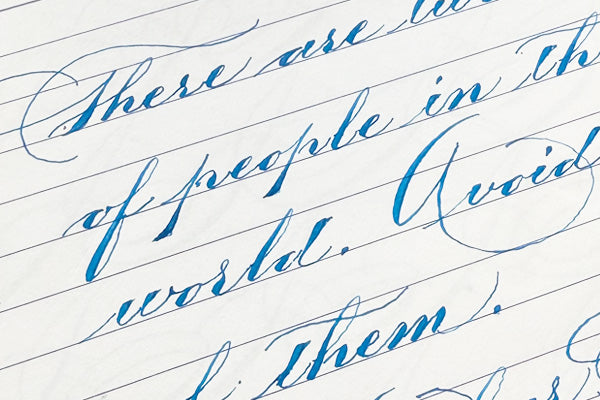 There are
of people in
world. Avoid
them.